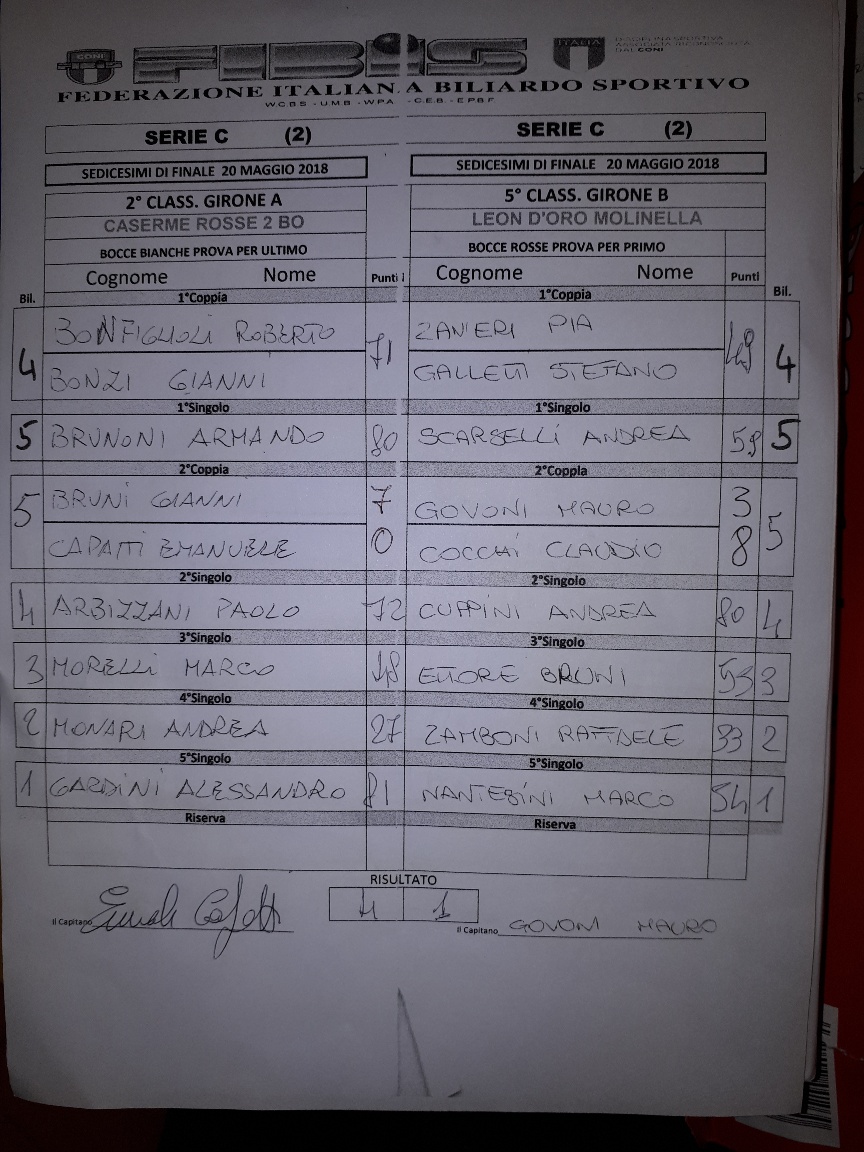 CONI FIBIS ITALIA DISCIPLINA SPORTIVA ASSOCIATA RICONOSCIUTA DAL CONI
FEDERAZIONE ITALIANA BILIARDO SPORTIVO
W.C.B.S - U.M.B - W.P.A - C.E.B - E.P.B.F
SERIE C (2) SERIE C (2)
SEDICESIMI DI FINALE 20 MAGGIO 2018 SEDICESIMI DI FINALE 20 MAGGIO 2018
2° CLASS. GIRONE A 5° CLASS. GIRONE B
CASERME ROSSE 2 BO LEON D'ORO MOLINELLA
BOCCE BIANCHE PROVA PER ULTIMO BOCCE ROSSE PROVA PER PRIMO
Bil. Cognome Nome Punti Cognome Nome Punti Bil.
1°Coppia 1°Coppia
4 BONFIGLIOLI ROBERTO 71 ZANIERI PIA 49 4
BONZI GIANNI GALLETTI STEFANO
1°Singolo 1°Singolo
5 BRUNONI ARMANDO 80 SCARSELLI ANDREA 59 5
2°Coppia 2°Coppia
5 BRUNI GIANNI 7 GOVONI MAURO 3 5
CAPATTI EMANUELE 0 COCCHI CLAUDIO 8
2°Singolo 2°Singolo
4 ARBIZZANI PAOLO 72 CUPPINI ANDREA 80 4
3°Singolo 3°Singolo
3 MORELLI MARCO 48 ETTORE BRUNI 53 3
4°Singolo 4°Singolo
2 MONARI ANDREA 27 ZAMBONI RAFFAELE 33 2
5°Singolo 5°Singolo
1 GARDINI ALESSANDRO 81 NANTESINI MARCO 54 1
Riserva Riserva
RISULTATO
4 1
Il Capitano Il Capitano GOVONI MAURO